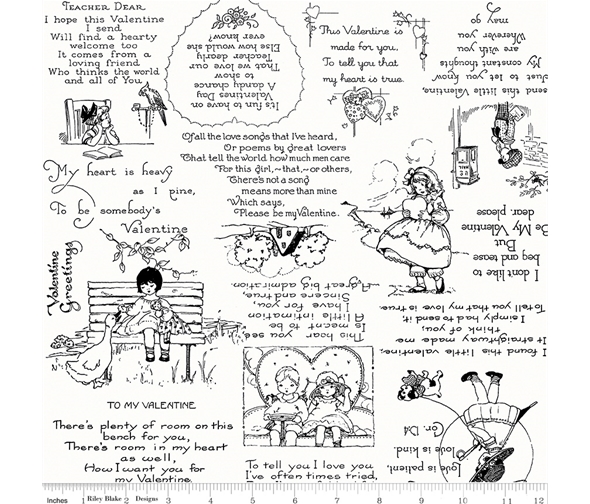 TEACHER DEAR
I hope this Valentine
I send
Will find a hearty
welcome too
It comes from a
loving friend
Who thinks the world
and all of You
Its fun to have on
Valentines Day
A dandy chance
to show
That we love our
Teacher dearly
How else would she
ever know?
This Valentine is
made for you,
To tell you that
my heart is true.
send this little Valentine,
Just to let you know
My constant thoughts
are with you
Wherever you
may go
Of all the love songs that I've heard,
Or poems by great lovers
That tell the world how much men care
For this girl,~that,~or others,
There's not a song
means more than mine
Which says,
Please be my Valentine.
My heart is heavy
as I pine,
To be somebody's
Valentine
I don't like to
beg and tease
But
Be My Valentine
dear, please
Valentine
Greetings
This heart you see
Is meant to be
A little intimation
I have for you,
Sincere and true,
A great big admiration.
I found this little valentine;
It straightway made me
think of you.
I simply had to send it
To tell you that my love is true.
TO MY VALENTINE
There's plenty of room on this
bench for you,
There's room in my heart
as well,
How I want you for
my Valentine
To tell you I love you
I've often times tried,
Love is patient,
love is kind.
Cor. 13:4
Inches 1 Riley Blake 2 Designs 3 4 5 6 7 8 9 10 11 12